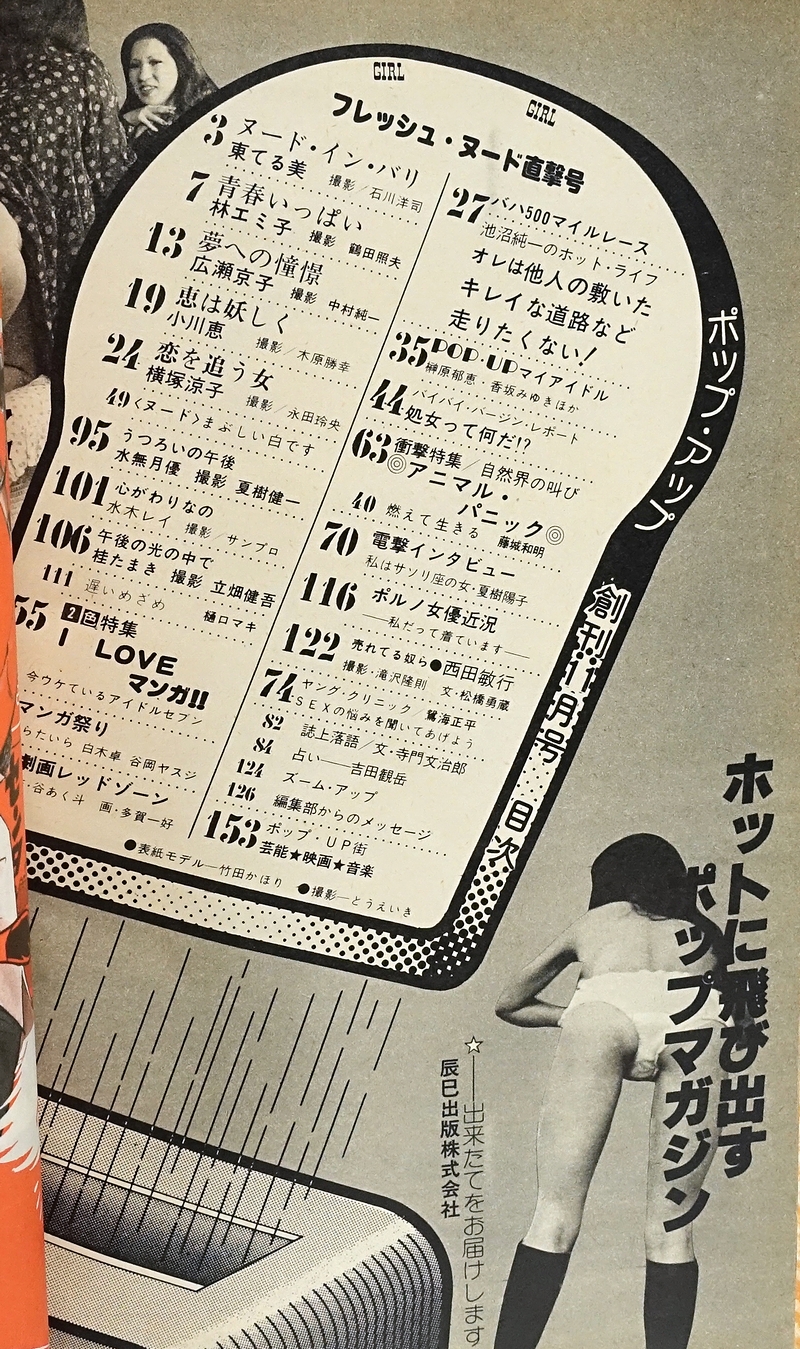 GIRL
GIRL
フレッシュ・ヌード直撃号
3 ヌード・イン・バリ
東てる美 撮影/石川洋司
7 青春いっぱい
林エミ子 撮影 鶴田照夫
13 夢への憧憬
広瀬京子 撮影 中村純一
19 恵は妖しく
小川恵 撮影/木原勝幸
24 恋を追う女
横塚涼子 撮影/永田玲央
49 〈ヌード〉まぶしい白です
95 うつろいの午後
水無月優 撮影 夏樹健一
101 心がわりなの
水木レイ 撮影/サンプロ
106 午後の光の中で
桂たまき 撮影 立畑健吾
111 遅いめざめ 樋口マキ
55 2色特集
I LOVE
マンガ!!
今ウケているアイドルセブン
マンガ祭り
らたいら 白木卓 谷岡ヤスジ
劇画レッドゾーン
・谷あく斗 画・多賀一好
27 バハ500マイルレース
池沼純一のホット・ライフ
オレは他人の敷いた
キレイな道路など
走りたくない!
35 POP・UPマイアイドル
榊原郁恵 香坂みゆきほか
44 バイバイ・バージン・レポート
処女って何だ!?
63 衝撃特集/自然界の叫び
◎アニマル・
パニック◎
40 燃えて生きる 藤城和明
70 電撃インタビュー
私はサソリ座の女・夏樹陽子
116 ポルノ女優近況
——私だって着ています——
122 売れてる奴ら●西田敏行
撮影・滝沢隆則 文・松橋勇蔵
74 ヤング・クリニック/鷺海正平
SEXの悩みを聞いてあげよう
82 誌上落語/文・寺門文治郎
84 占い——吉田観岳
124 ズーム・アップ
126 編集部からのメッセージ
153 ポップ UP街
芸能★映画★音楽
●表紙モデル—竹田かほり ●撮影—とうえいき
ポップ・アップ 創刊11月号 目次
ホットに飛び出す
ポップマガジン
☆——出来たてをお届けします
辰巳出版株式会社